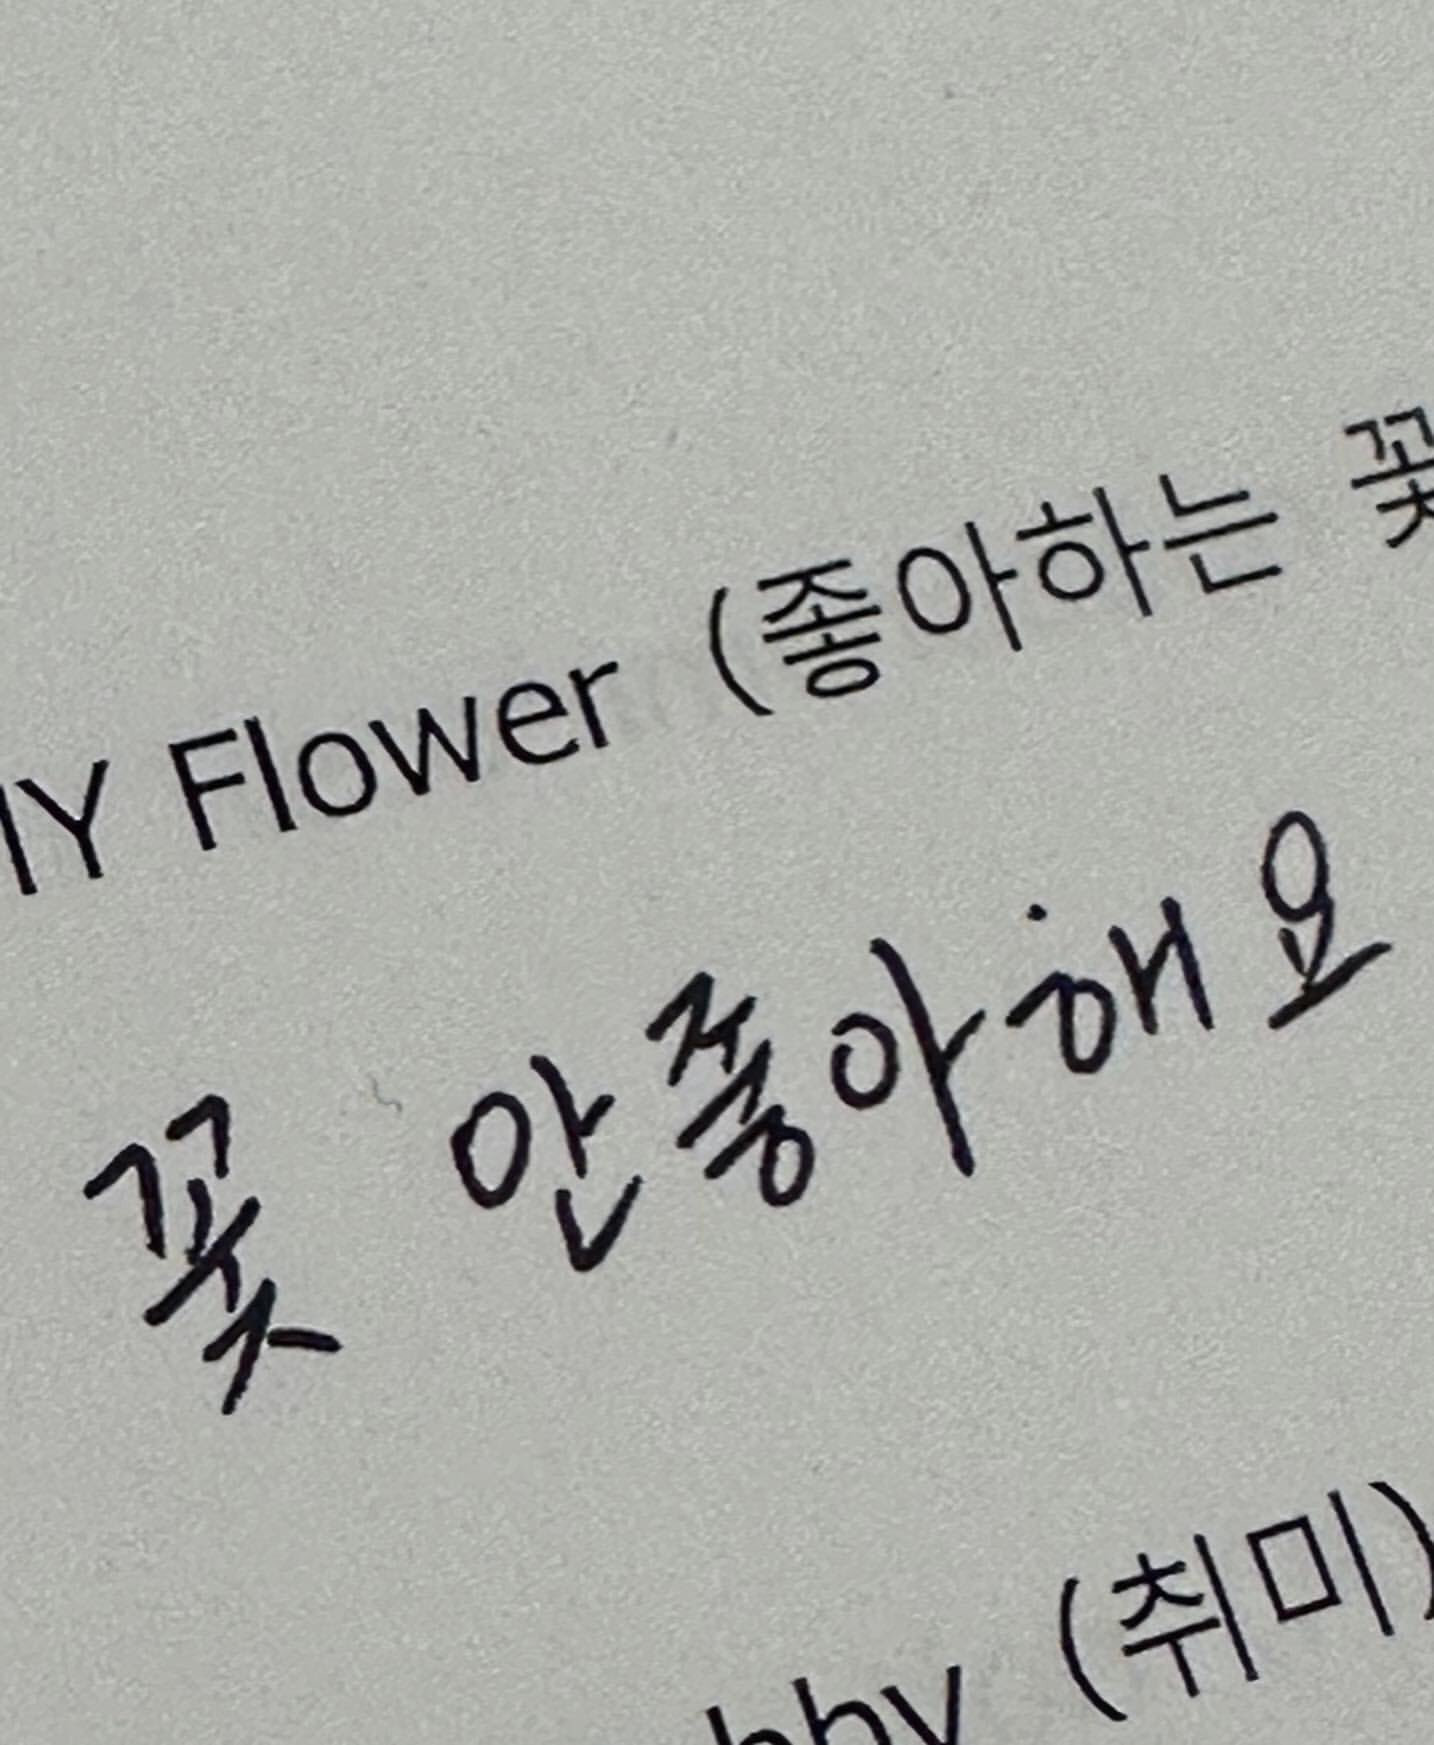 MY Flower (좋아하는 꽃
꽃 안좋아해요
(취미)